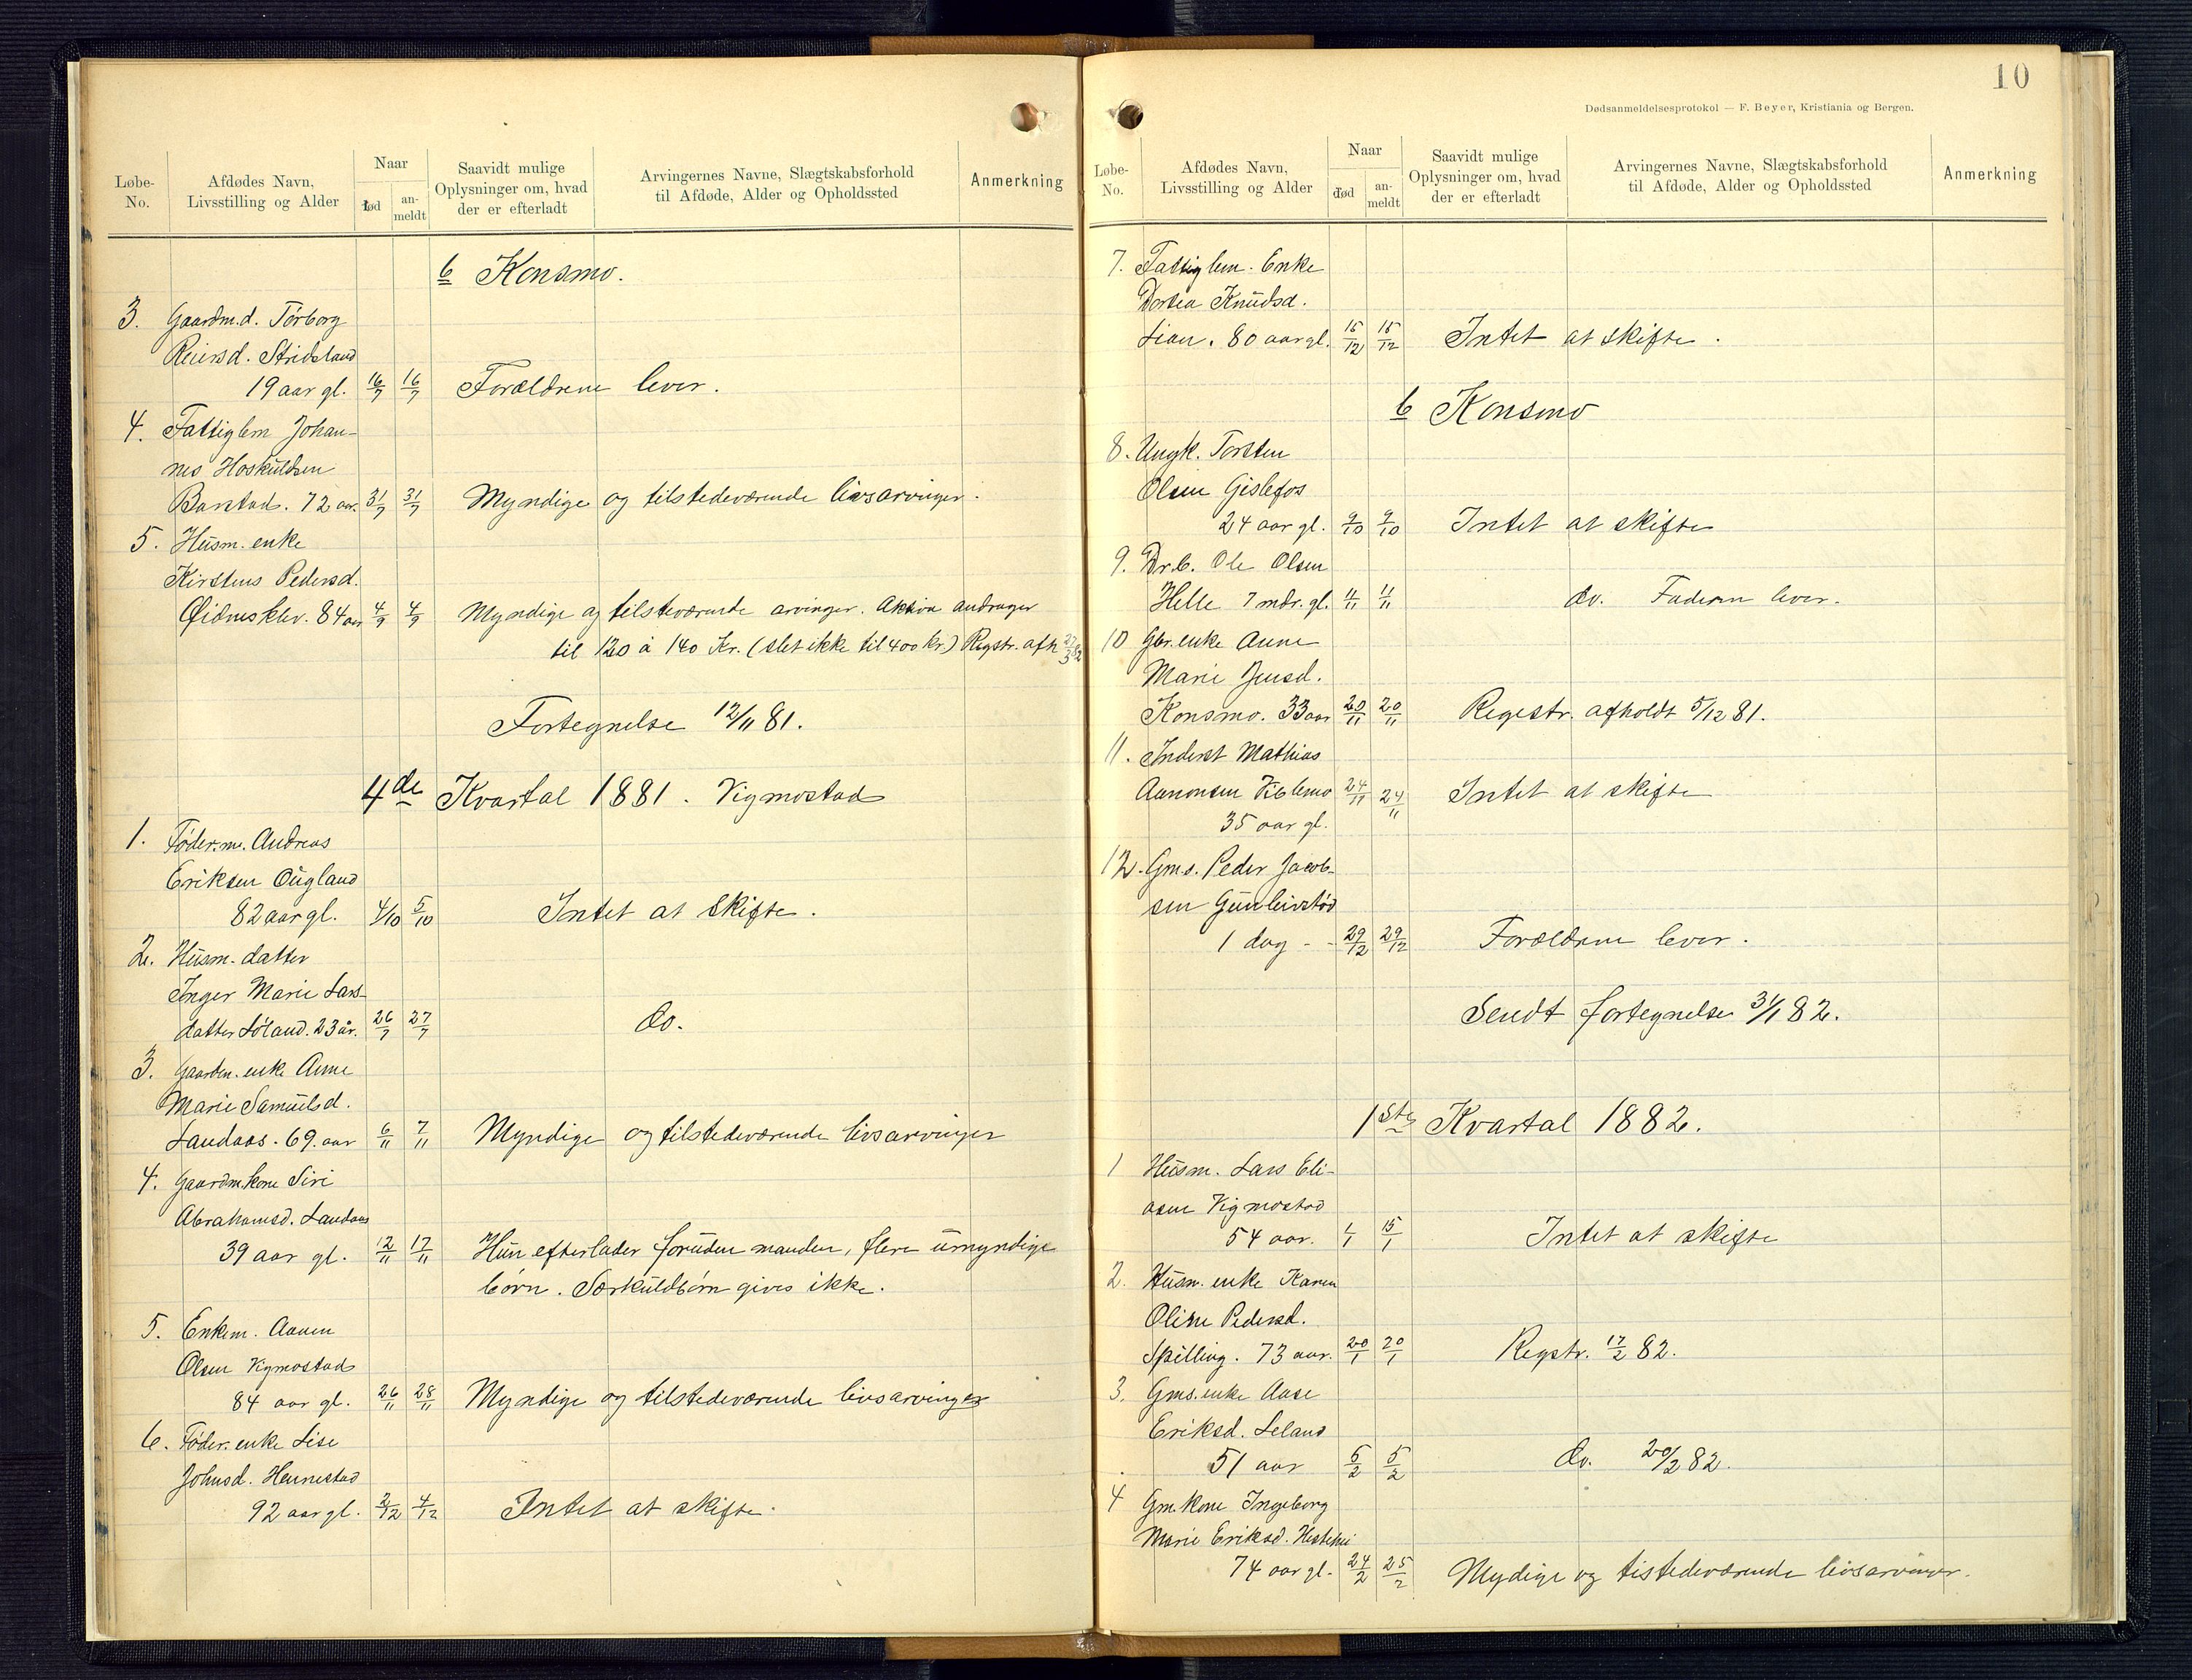 Løbe-No.
Afdødes Navn, Livsstilling og Alder
Naar
død
an-meldt
Saavidt mulige Oplysninger om, hvad der er efterladt
Arvingernes Navne, Slægtskabsforhold til Afdøde, Alder og Opholdssted
Anmerkning
b Konsmo.
3. Gaardm.d. Tórborg
Reiersd. Stridsland
19 aar gl. 16/7 16/7 Forældrene lever.
4. Fattiglem Johan-
nes Hoskuldsen
Barstad. 72 aar. 31/7 31/7 Myndige og tilstedeværende livsarvinger.
5. Husm. enke
Kirstens Pedersd.
Øidnesklev. 84 aar 4/9 4/9 Myndige og tilsteværende arvinger. Aktiva andrager
til 120 à 140 Kr. (slet ikke til 400 kr.) Regstr. afh 27/3 82
Fortegnelse 12/11 81.
4de Kvartal 1881. Vigmostad
1. Føder.m. Andreas
Eriksen Ougland
82 aar gl. 4/10 5/10 Intet at skifte.
2. Husm. datter
Inger Marie Lars-
datter Løland. 23 år. 26/7 27/7 do.
3. Gaardm. enke Anne
Marie Samuelsd.
Landaas. 69. aar 6/11 7/11 Myndige og tilstedeværende livsarvinger
4. Gaardm.kone Siri
Abrahamsd. Landaas
39 aar gl. 12/11 17/11 Hun efterlader foruden manden, flere umyndige
børn. Særkuldbørn gives ikke.
5. Enkem. Aanen
Olsen Vigmostad
84 aar gl. 26/11 28/11 Myndige og tilstedeværende livsarvinger
6. Føder. enke Lise
Johnsd. Hennestad
92 aar gl. 2/12 4/12 Intet at skifte.
10
Dødsanmeldelsesprotokol — F. Beyer, Kristiania og Bergen.
Løbe-No.
Afdødes Navn, Livsstilling og Alder
Naar
død
an-meldt
Saavidt mulige Oplysninger om, hvad der er efterladt
Arvingernes Navne, Slægtskabsforhold til Afdøde, Alder og Opholdssted
Anmerkning
7. Fattiglem. Enke
Dortea Knudsd.
Lian. 80 aar gl. 15/12 15/12 Intet at skifte.
b Konsmo
8. Ungk. Torsten
Olsen Gislefos
24 aar gl. 9/10 9/10 Intet at skifte
9. Dr.b. Ole Olsen
Helle 7 mdr. gl. 11/11 11/11 do. Faderen lever.
10 Gbr. enke Anne
Marie Jensd.
Konsmo. 33 aar 20/11 20/11 Regestr. afholdt 5/12 81.
11. Inderst Mathias
Aanonsen Viblemo 24/11 24/11 Intet at skifte
35 aar gl.
12. Gm.s. Peder Jacob-
sen Gunleivstød
1 dag - - 29/12 29/12 Forældrene lever.
Sendt fortegnelse 31/1 82.
1ste Kvartal 1882.
1 Husm. Lars Eli-
asen Vigmostad
54 aar. 1/1 15/1 Intet at skifte
2. Husm. enke Karen
Oline Pedersd.
Spilling. 73 aar. 20/1 20/1 Regstr. 17/2 82.
3. Gms. enke Aase
Eriksd. Leland
51 aar 5/2 5/2 do. 20/2 82.
4 Gm. kone Ingeborg
Marie Eriksd. Hestehei
74 aar gl. 24/2 25/2 Mydige og tistedeværende livsarvinger.